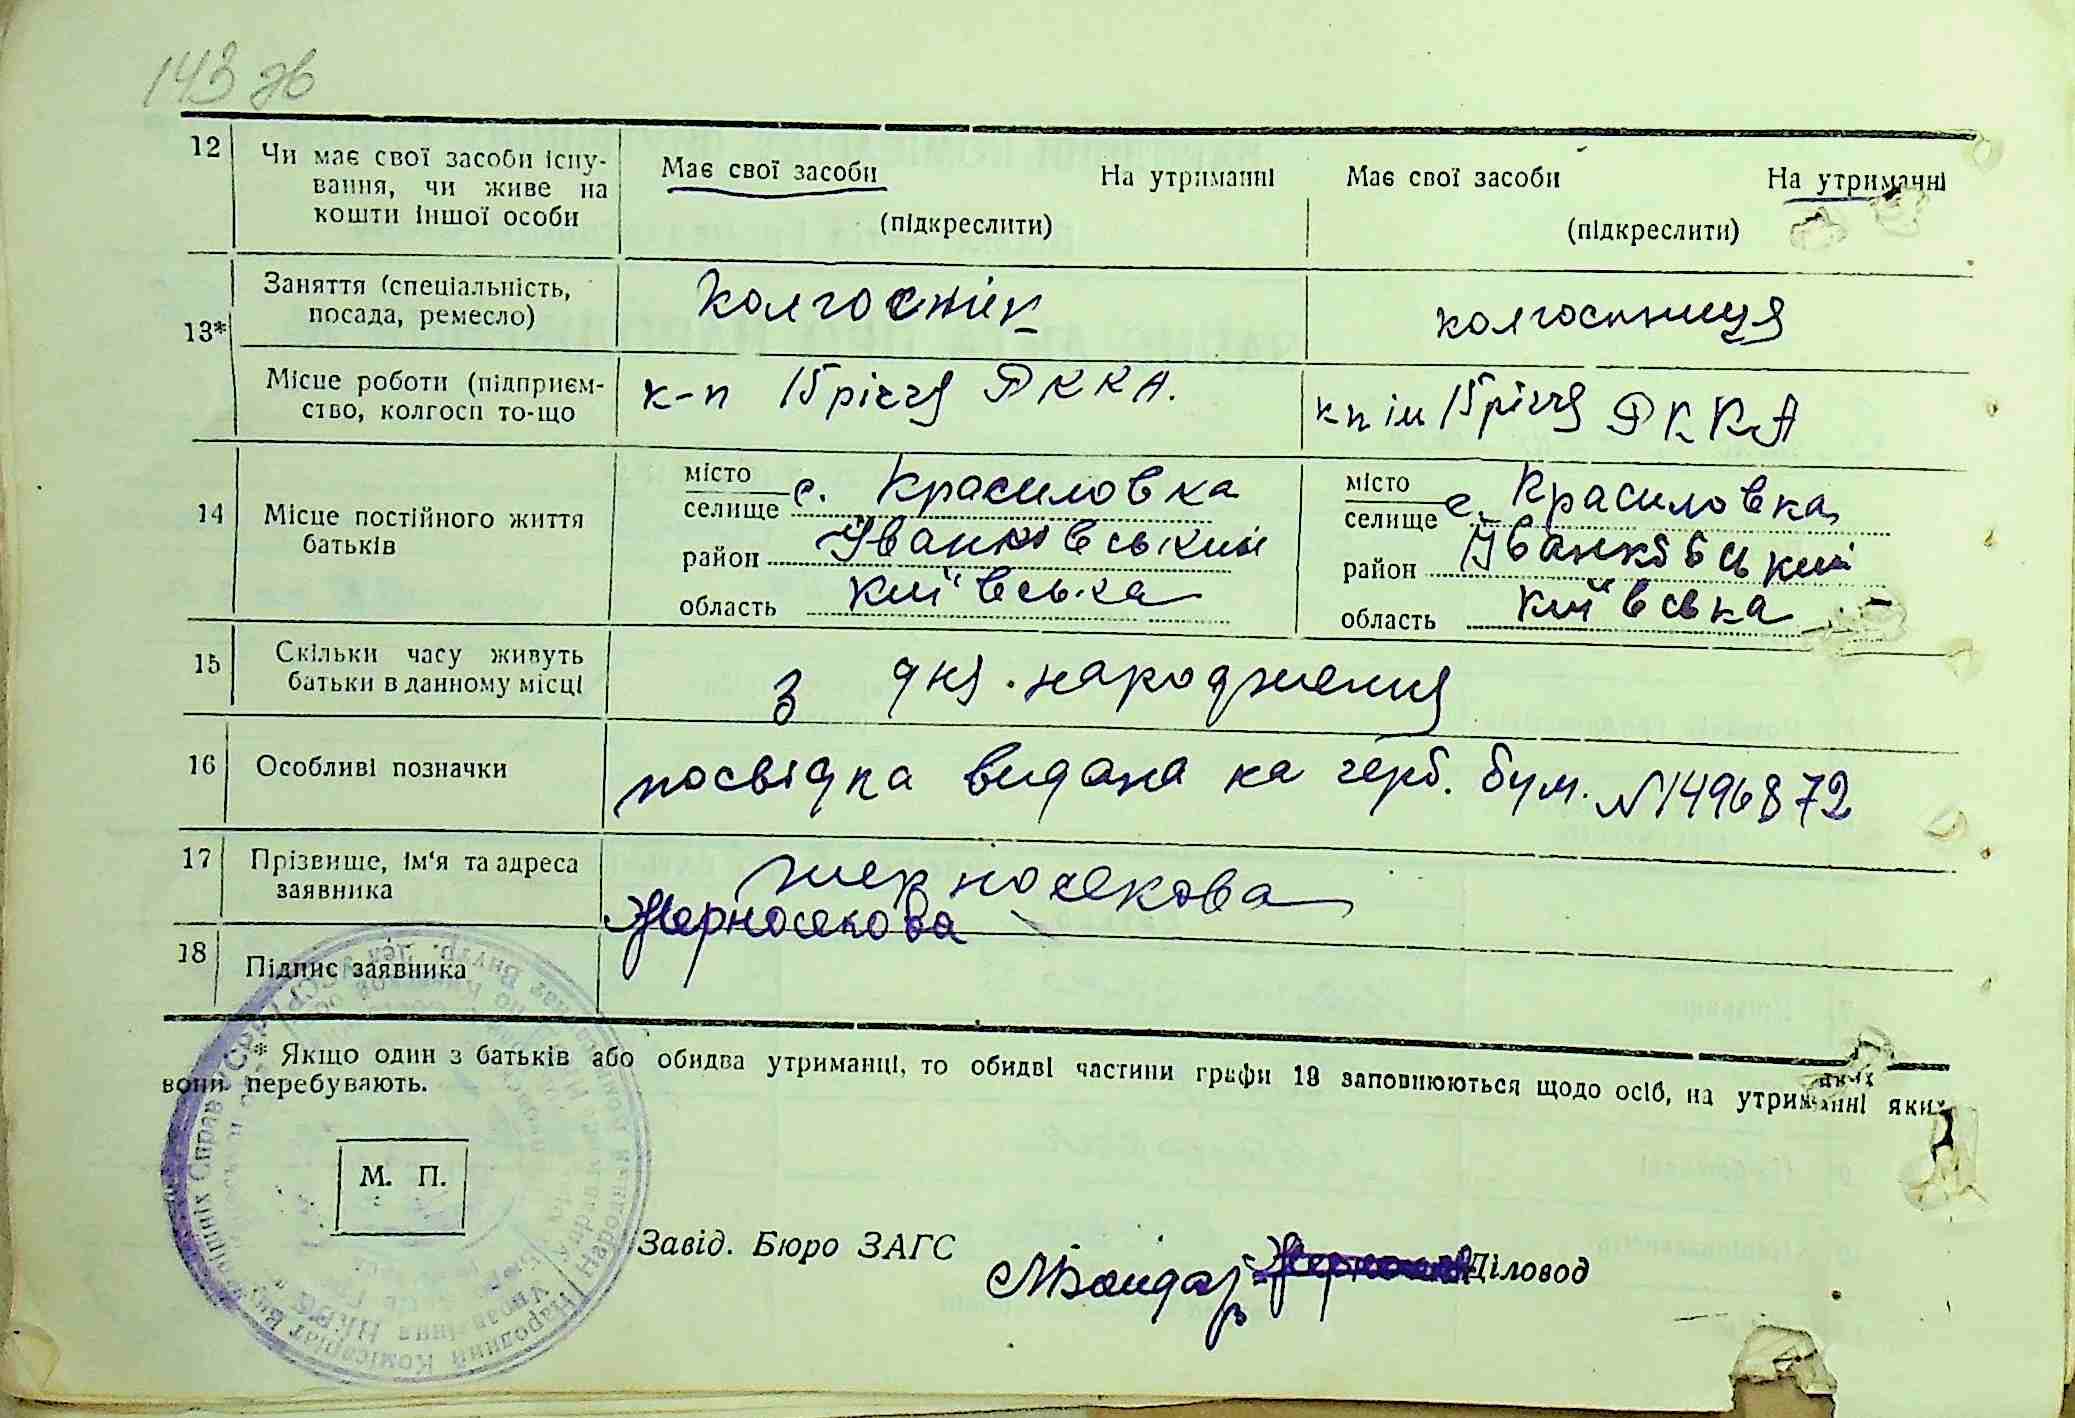 143 зв
12
Чи має свої засоби існу-
вання, чи живе на
кошти іншої особи
Має свої засоби На утриманні
(підкреслити)
Має свої засоби На утриманні
(підкреслити)
13*
Заняття (спеціальність,
посада, ремесло)
колгоспнік
колгоспниця
Місце роботи (підприєм-
ство, колгосп то-що
к-п 15 річчя РККА.
кп ім 15 річчя РККА
14
Місце постійного життя
батьків
місто
селище с. Красиловка
район Іванковський
область київська
місто
селище с. Красиловка
район Іванковський
область київська
15
Скільки часу живуть
батьки в данному місці
З дня народження
16
Особливі позначки
посвідка видана на герб. бум. №1496872
17
Прізвище, ім'я та адреса
заявника
Жерносекова
18
Підпис заявника
Жерносекова
* Якщо один з батьків або обидва утриманці, то обидві частини графи 13 заповнюються щодо осіб, на утриманні яких
вони перебувають.
М. П.
Завід. Бюро ЗАГС
Діловод